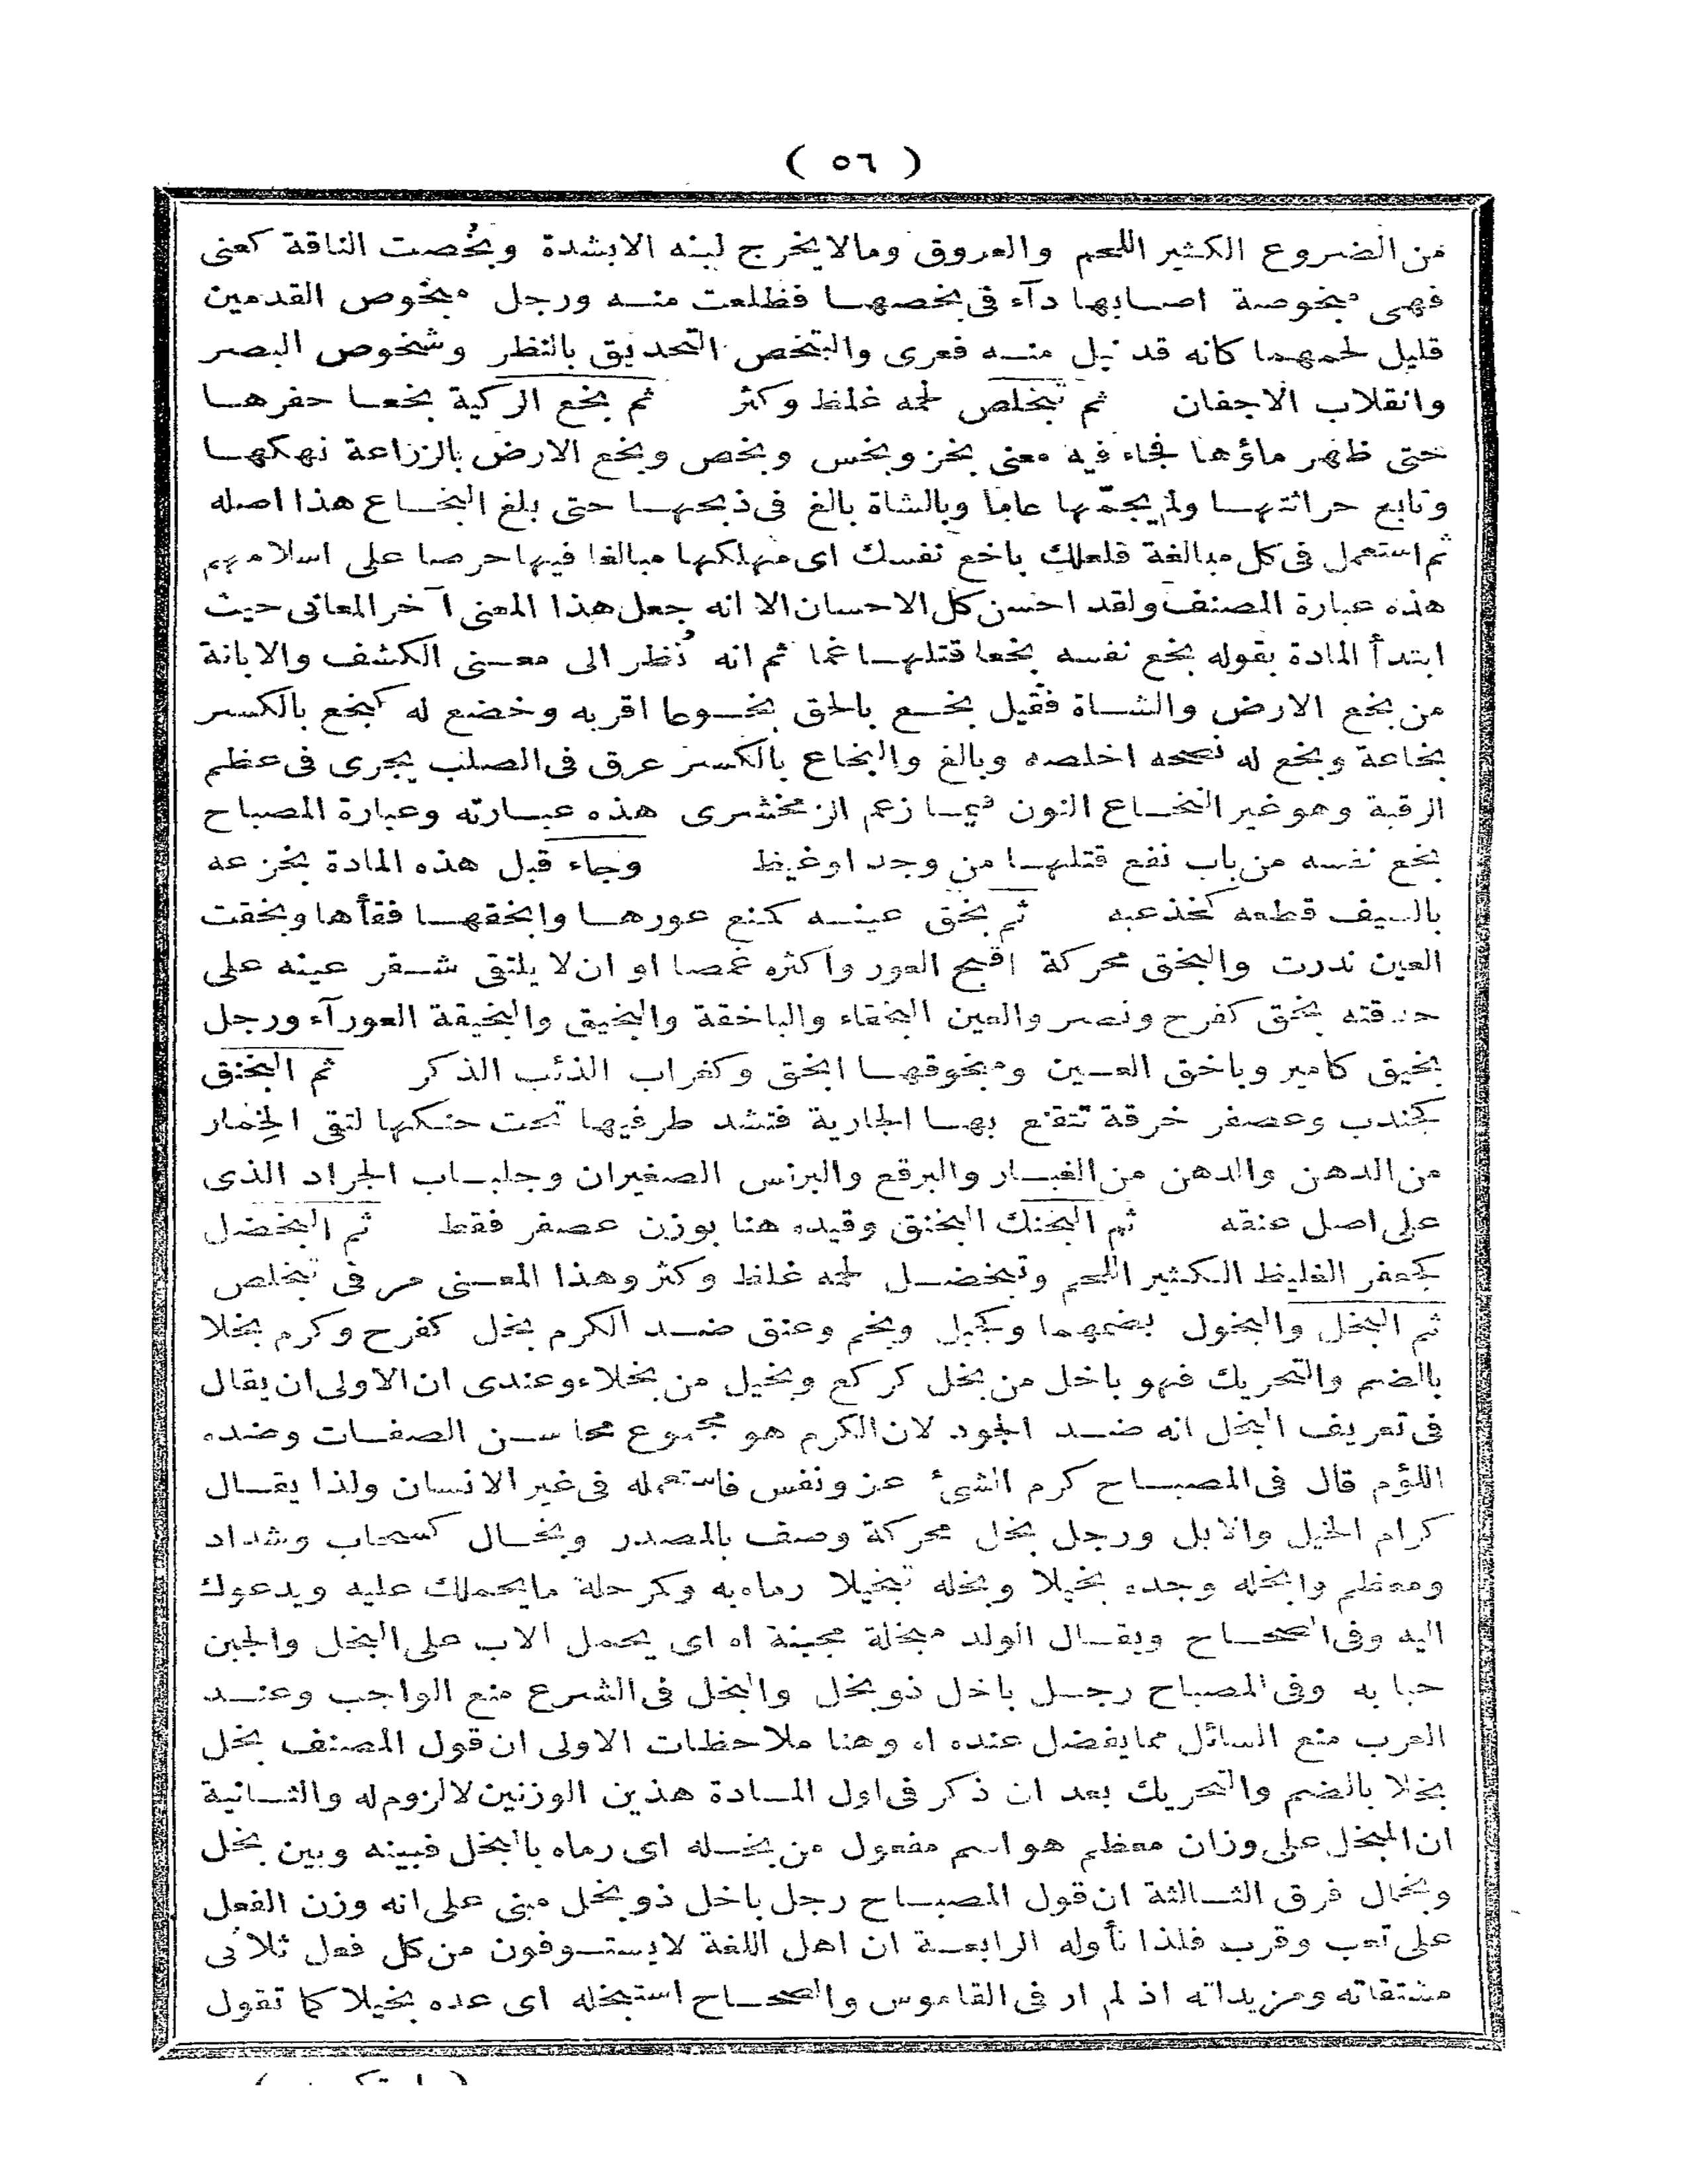 ( ٥٦ )
من الضروع الكثير اللحم والعروق ومالايخرج لبنه الابشدة وبُخصت الناقة كعنى
فهى مبخوصة اصابها دآء فى بخصها فظلعت منه ورجل مبخوص القدمين
قليل لحمهما كانه قد نيل منه فعرى والتبخص التحديق بالنظر وشخوص البصر
وانقلاب الاجفان ثم تبخلص لحمه غلظ وكثر ثم بخع الركية بخعا حفرها
حتى ظهر ماؤها فجاء فيه معنى بخز وبخس وبخص وبخع الارض بالزراعة نهكها
وتابع حراثتها ولم يجمّها عاما وبالشاة بالغ فى ذبحها حتى بلغ البخاع هذا اصله
ثم استعمل فى كل مبالغة فلعلك باخع نفسك اى مهلكها مبالغا فيها حرصا على اسلامهم
هذه عبارة المصنف ولقد احسن كل الاحسان الا انه جعل هذا المعنى آخر المعانى حيث
ابتدأ المادة بقوله بخع نفسه بخعا قتلها غما ثم انه نُظر الى معنى الكشف والابانة
من بخع الارض والشاة فقيل بخع بالحق بخوعا اقر به وخضع له كبخع بالكسر
بخاعة وبخع له نصحه اخلصه وبالغ والبخاع بالكسر عرق فى الصلب يجرى فى عظم
الرقبة وهو غير النخاع النون فيما زعم الزمخشرى هذه عبارته وعبارة المصباح
بخع نفسه من باب نفع قتلها من وجد اوغيظ وجاء قبل هذه المادة بخزعه
بالسيف قطعه كخذعبه ثم بخق عينه كمنع عورها وابخقها فقأها وبخقت
العين ندرت والبخق محركة اقبح العور واكثره غمصا او ان لا يلتقى شفر عينه على
حدقته بخق كفرح ونصر والعين البخقاء والباخقة والبخيق والبخيقة العورآء ورجل
بخيق كامير وباخق العين ومبخوقها ابخق وكغراب الذئب الذكر ثم البخنق
كجندب وعصفر خرقة تتقنع بها الجارية فتشد طرفيها تحت حنكها لتقى الخِمار
من الدهن والدهن من الغبار والبرقع والبرنس الصغيران وجلباب الجراد الذى
على اصل عنقه ثم البخنك البخنق وقيده هنا بوزن عصفر فقط ثم البخضل
كجعفر الغليظ الكثير اللحم وتبخضل لحمه غلظ وكثر وهذا المعنى مر فى تبخلص
ثم البخل والبخول بضمهما وكجبل ونجم وعنق ضد الكرم بخل كفرح وكرم بخلا
بالضم والتحريك فهو باخل من بخل كركع وبخيل من بخلاء وعندى ان الاولى ان يقال
فى تعريف البخل انه ضد الجود لان الكرم هو مجموع محاسن الصفات وضده
اللؤم قال فى المصباح كرم الشئ عز ونفس فاستعمله فى غير الانسان ولذا يقال
كرام الخيل والابل ورجل بخل محركة وصف بالمصدر وبخال كسحاب وشداد
ومعظم وابخله وجده بخيلا وبخله تبخيلا رماه به وكمرحلة مايحملك عليه ويدعوك
اليه وفى الصحاح ويقال الولد مبخلة مجبنة اه اى يحمل الاب على البخل والجبن
حبا به وفى المصباح رجل باخل ذو بخل والبخل فى الشرع منع الواجب وعند
العرب منع السائل مما يفضل عنده اه وهنا ملاحظات الاولى ان قول المصنف بخل
بخلا بالضم والتحريك بعد ان ذكر فى اول المادة هذين الوزنين لالزوم له والثانية
ان المبخل على وزان معظم هو اسم مفعول من بخله اى رماه بالبخل فبينه وبين بخل
وبخال فرق الثالثة ان قول المصباح رجل باخل ذو بخل مبنى على انه وزن الفعل
على تعب وقرب فلذا نأوله الرابعة ان اهل اللغة لايستوفون من كل فعل ثلاثى
مشتقاته ومزيداته اذ لم ار فى القاموس والصحاح استبخله اى عده بخيلا كما تقول